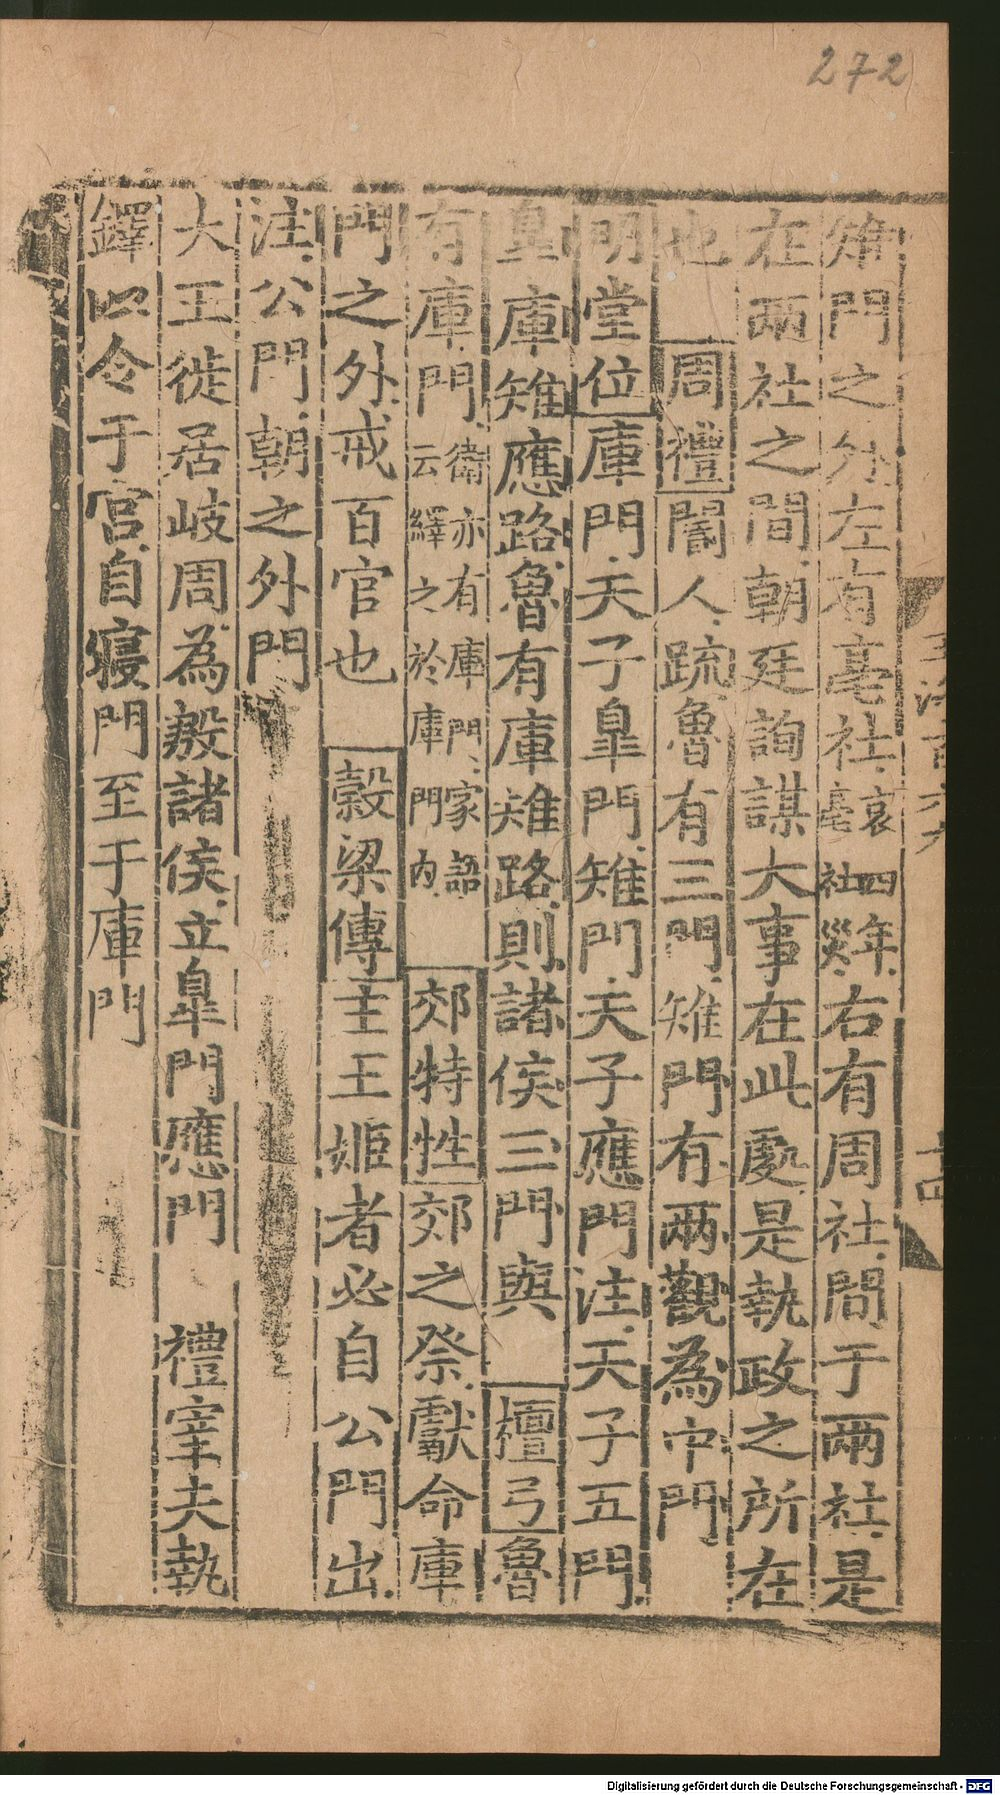 272
雉門之外左有亳社哀四年亳社災右有周社間于兩社是
在兩社之間朝廷詢謀大事在此處是執政之所在
也 周禮閽人疏魯有三門雉門有兩觀為中門
明堂位庫門天子皐門雉門天子應門注天子五門
皐庫雉應路魯有庫雉路則諸侯三門與 檀弓魯
有庫門衛亦有庫門家語云繹之於庫門內 郊特牲郊之祭獻命庫
門之外戒百官也 穀梁傳主王姬者必自公門出
注公門朝之外門
大王徙居岐周為殷諸侯立皐門應門 禮宰夫執
鐸以令于宮自寢門至于庫門
Digitalisierung gefördert durch die Deutsche Forschungsgemeinschaft - DFG